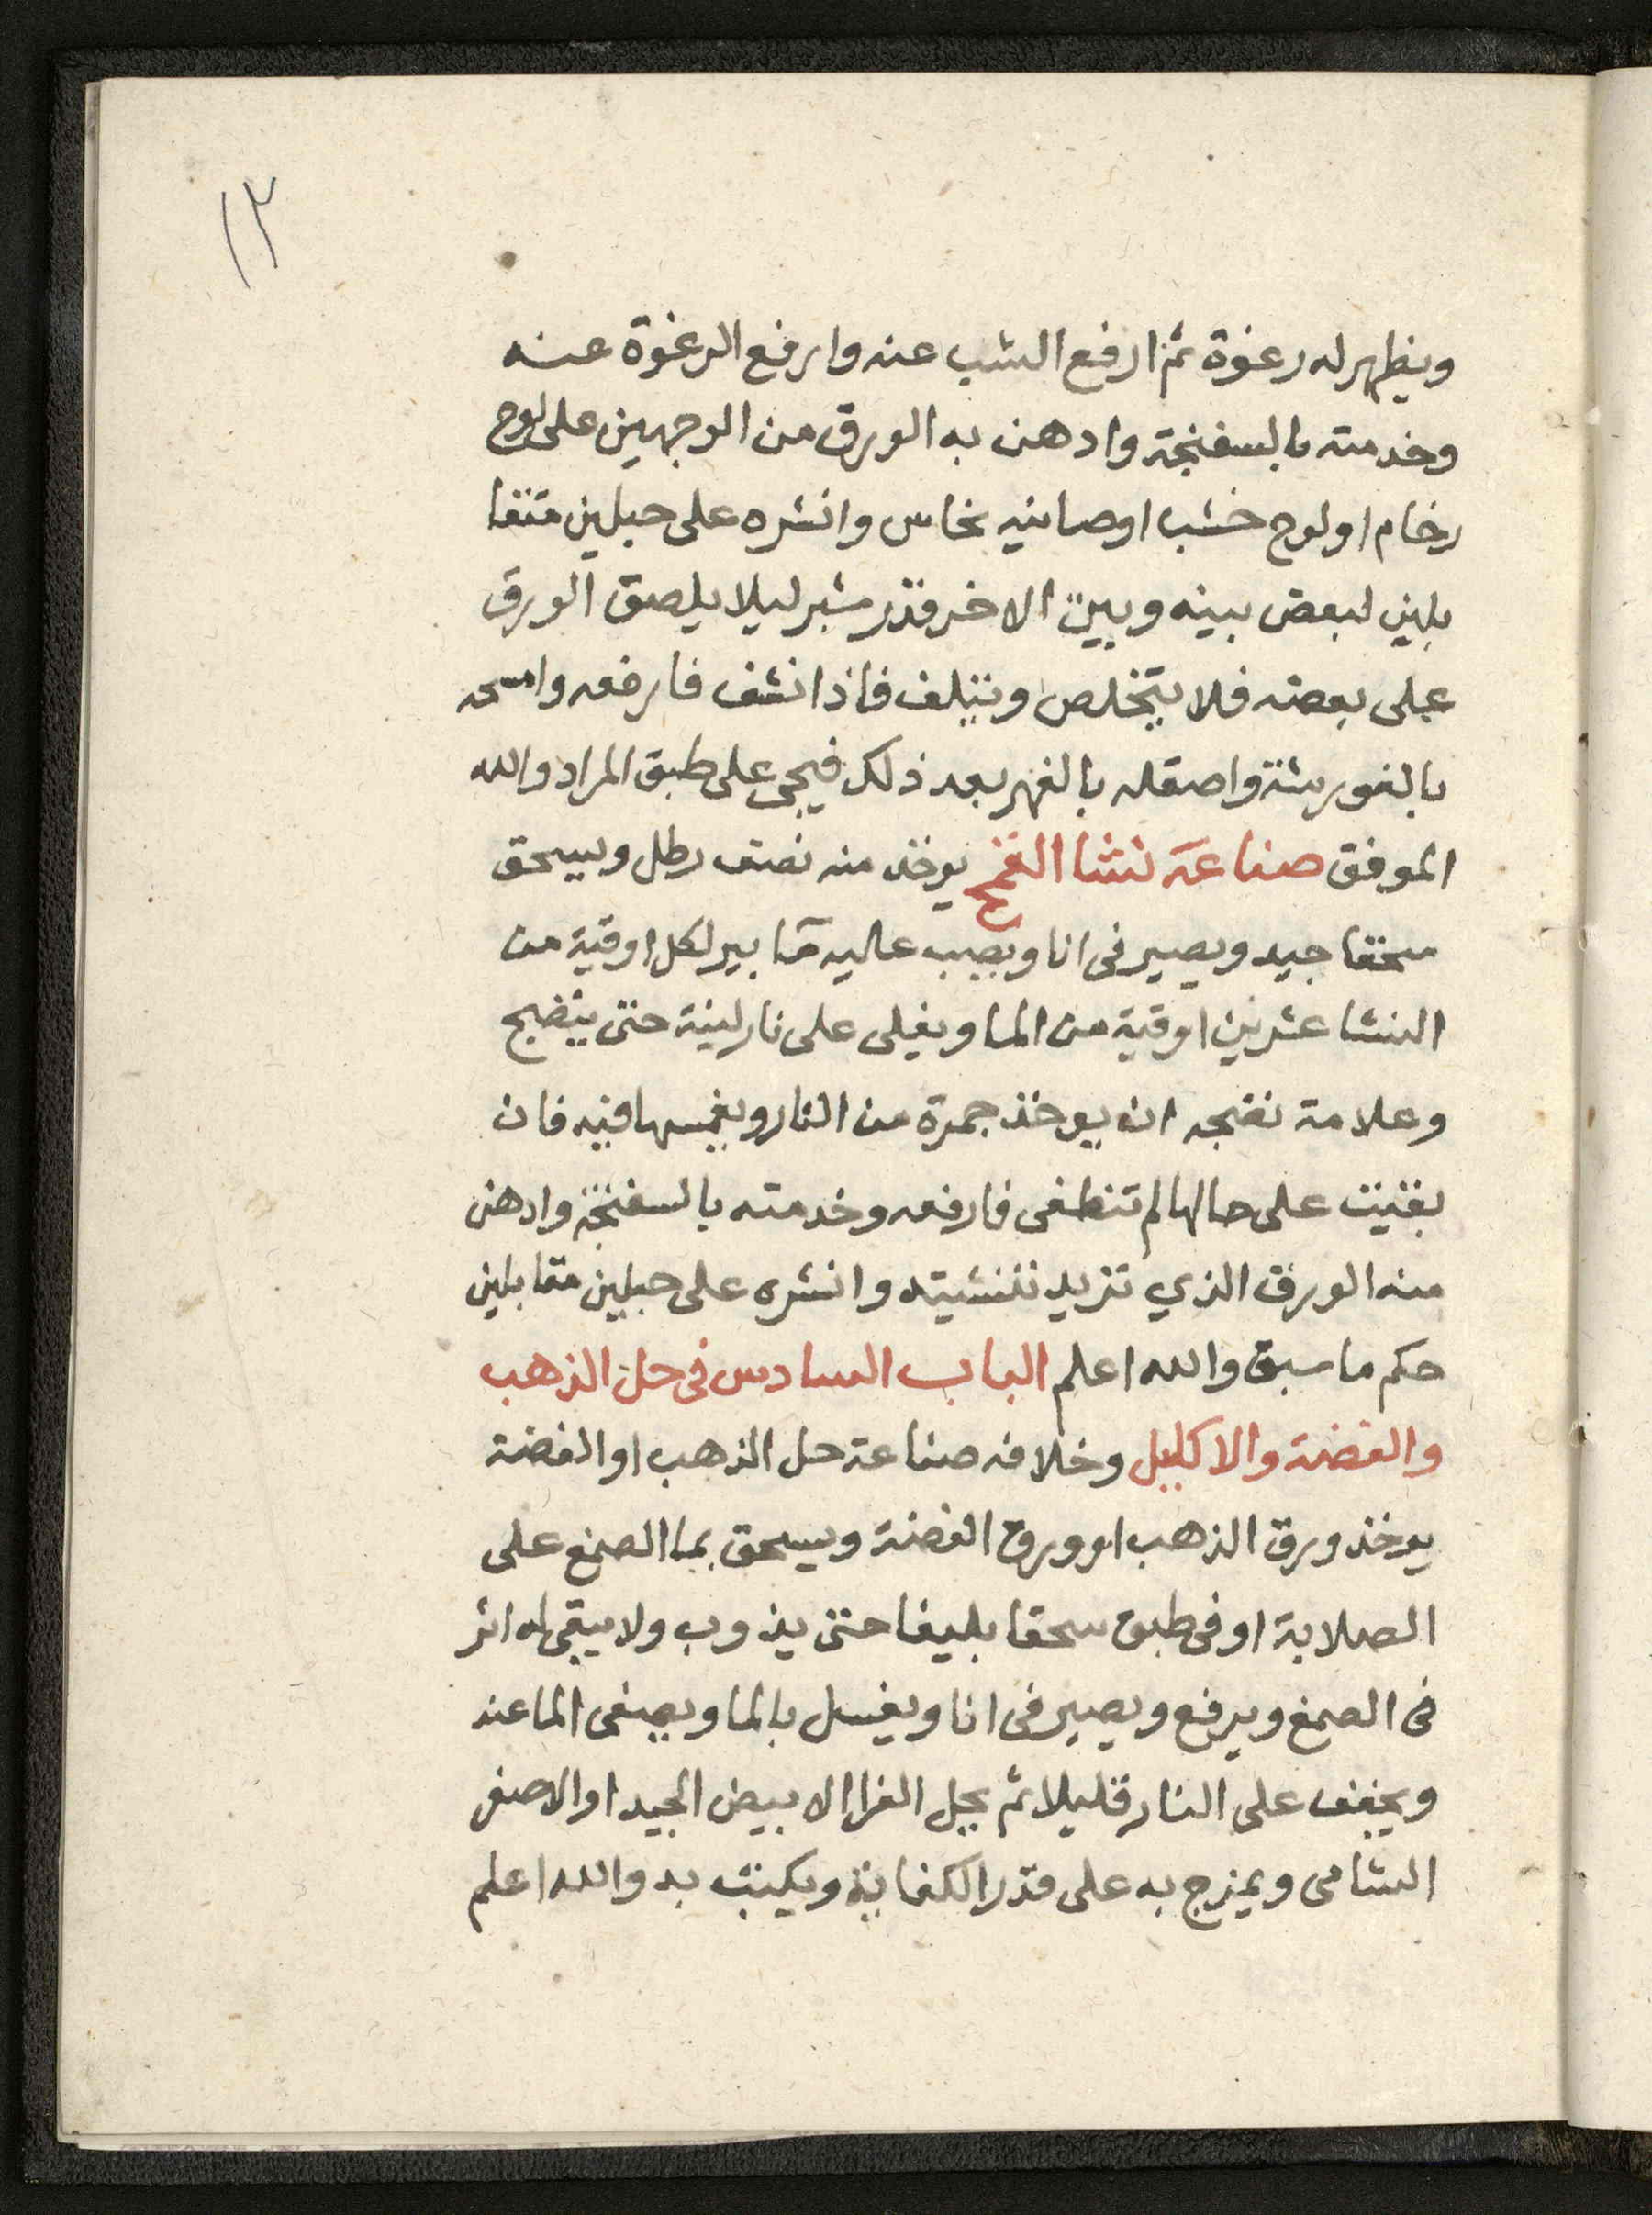 ١٣
ويظهر له رغوة ثم ارفع الشب عنه وارفع الرغوة عنه
وخدمته بالسفنجة وادهن به الورق من الوجهين على لوح
رخام او لوح خشب او صانيه نحاس وانشره على حبلين متقا
بلين لبعض بينه وبين الاخر قدر شبر ليلا يلصق الورق
على بعضه فلا يتخلص ويتلف فاذا نشف فارفعه وامسحه
بالفوريشة واصقله بالفهر بعد ذلك فيجى على طبق المراد والله
الموفق صناعة نشا القمح يوخذ منه نصف رطل ويسحق
سحقا جيد ويصير فى انا ويصب عاليه مآ بير لكل اوقية من
النشا عشرين اوقية من الما ويغلى على نار لينة حتى ينضج
وعلامة نضجه ان يوخذ جمرة من النار ويغمسها فيه فان
بقيت على حالها لم تنطفى فارفعه وخدمته بالسفنجة وادهن
منه الورق الذي تريد تنشيته وانشره على حبلين متقابلين
حكم ما سبق والله اعلم الباب السادس فى حل الذهب
والفضة والاكليل وخلافه صناعة حل الذهب او الفضة
يوخذ ورق الذهب او ورق الفضة ويسحق بما الصمغ على
الصلاية او فى طبق سحقا بليغا حتى يذوب ولا يبقى له اثر
فى الصمغ ويرفع ويصير فى انا ويغسل بالما ويصفى الما عنه
ويجفف على النار قليلا ثم يحل الغرا الابيض الجيد او الاصفر
الشامى ويمزج به على قدر الكفاية ويكتب به والله اعلم